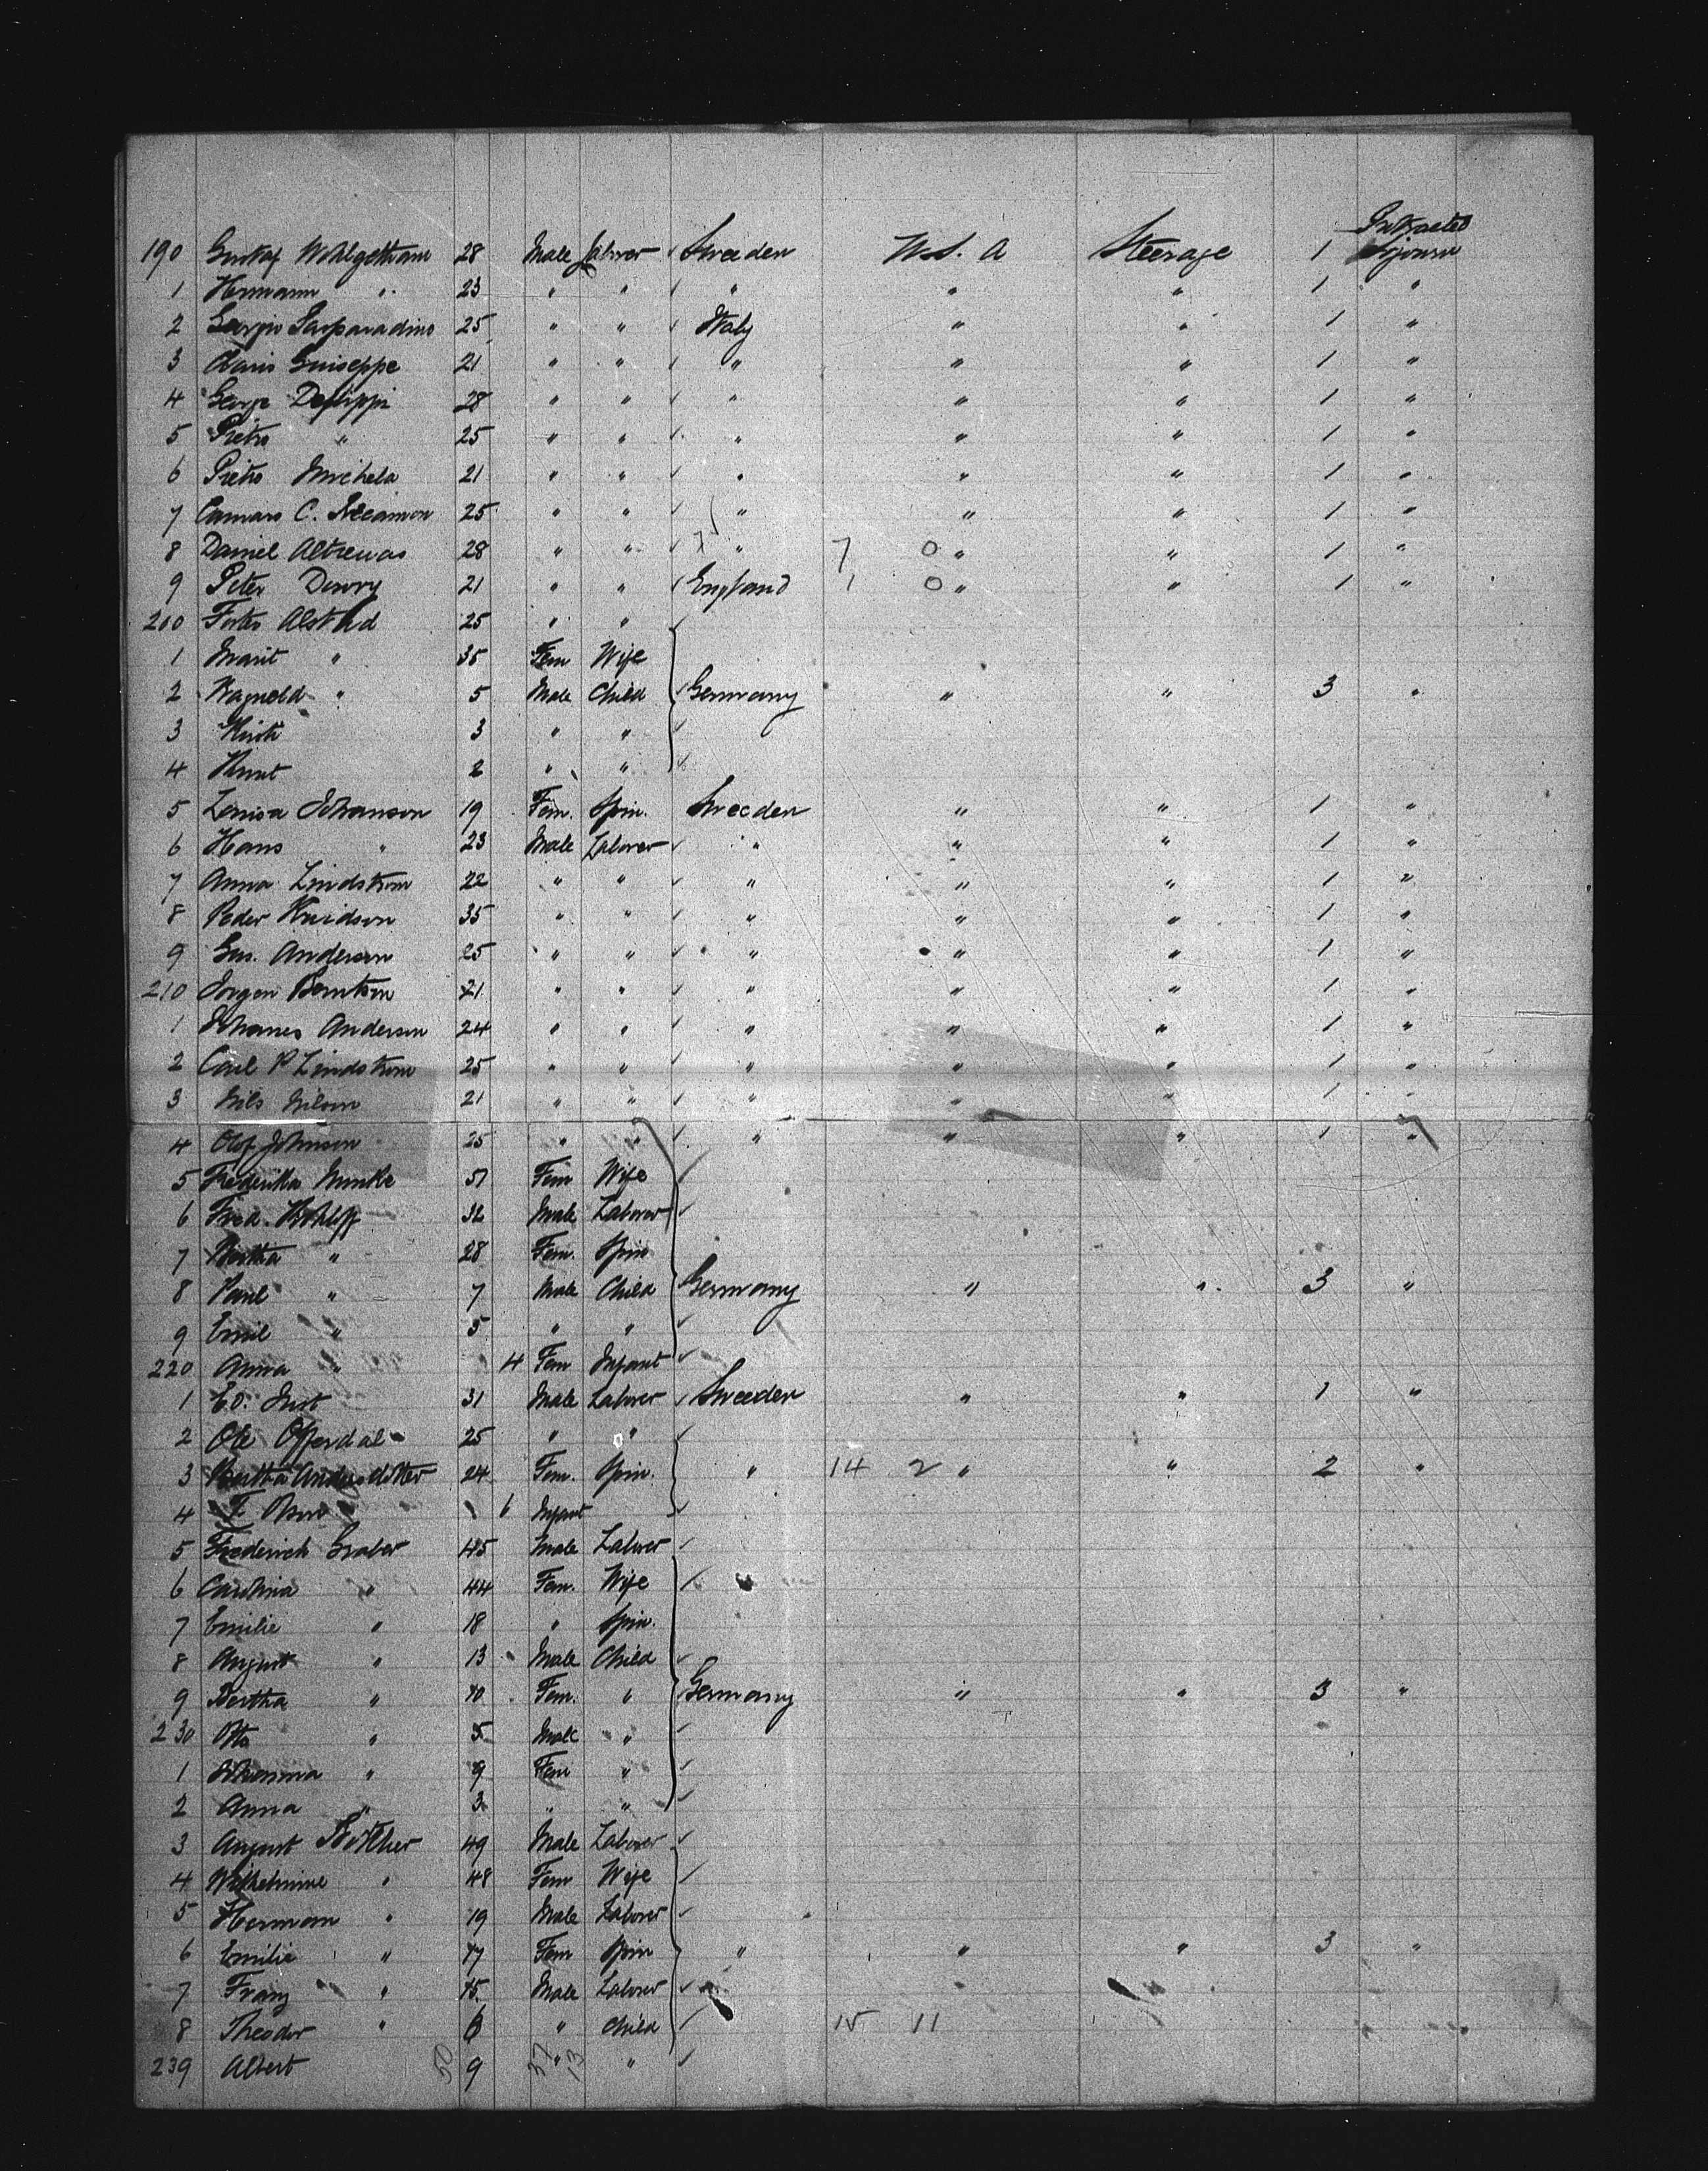 Protracted
190 Gustaf 28 Male Laborer Sweeden U.S. A Steerage 1 Sojourn
1 Hermann " 23 " " " " " 1 "
2 Giorgio 25 " " Italy " " 1 "
3 Guiseppe 21 " " " " " 1 "
4 George Defilippi 28 " " " " " 1 "
5 Pietro " 25 " " " " " 1 "
6 Pietro Michela 21 " " " " " 1 "
7 C. 25 " " " " " 1 "
8 Daniel 28 " " " 7 0 " " 1 "
9 Peter Dowry 21 " " England 1 0 " " 1 "
200 Alstad 25 " "
1 Marit " 35 Fem Wife
2 Ragnold " 5 Male Child Germany " " 3 "
3 3 " "
4 Knut 2 " "
5 Louisa Johanson 19 Fem. Spin. Sweeden " " 1 "
6 Hans " 23 Male Laborer " " " 1 "
7 Anna Lindstrom 22 " " " " " 1 "
8 Peder Knudson 35 " " " " " 1 "
9 Gus. Anderson 25 " " " " " 1 "
210 Jorgen Berntsen 21 " " " " " 1 "
1 Johanes Anderson 24 " " " " " 1 "
2 Carl P Lindstrom 25 " " " " " 1 "
3 Nils Nilson 21 " " " " " 1 "
4 Olof Johnson 25 " " " " " 1 "
5 Frederika Munke 57 Fem Wife
6 Fred. 32 Male Laborer
7 Bertha " 28 Fem. Spin
8 Paul " 7 Male Child Germany " " 3 "
9 Emil " 5 " "
220 Anna " 4 Fem Infant
1 Ed. 31 Male Laborer Sweeden " " 1 "
2 Ole Offerdal 25 " "
3 Bertha Andersdotter 24 Fem. Spin. " 14 2 " " 2 "
4 6 Infant
5 Frederich Graber 45 Male Laborer
6 Carolina " 44 Fem. Wife
7 Emilie " 18 " Spin.
8 August " 13 Male Child
9 Bertha " 10 Fem. " Germany " " 3 "
230 Otto " 5 Male "
1 Johanna " 9 Fem "
2 Anna " 3 " "
3 August Bottcher 49 Male Laborer
4 Wilhelmine " 48 Fem Wife
5 Herman " 19 Male Laborer
6 Emilie " 17 Fem Spin " " " 3 "
7 Franz " 15 Male Laborer
8 Theodor " 6 " Child 15 11
239 Albert 50 9 37 " 13 "